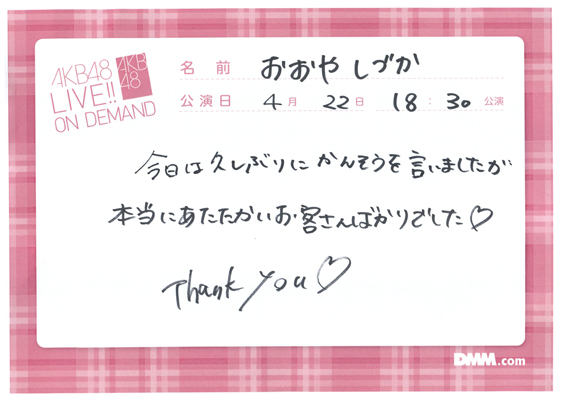 AKB48
LIVE!!
ON DEMAND
AKB
48
名前 おおや しづか
公演日 4月 22日 18:30公演
今日は久しぶりにかんそうを言いましたが
本当にあたたかいお客さんばかりでした♡
Thank you♡
DMM.com